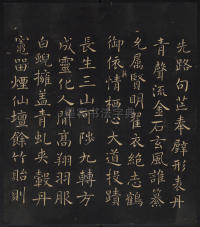 先路句芒奉辟形表丹
青聲流金石玄風誰纂
允属賢明翟衣絶志鶴
御依情栖心大道投蹟
長生三山可陟九轉方
成靈化人間高翔羽服
白蜺擁蓋青虬夾轂丹
竈留煙仙壇餘竹貽則